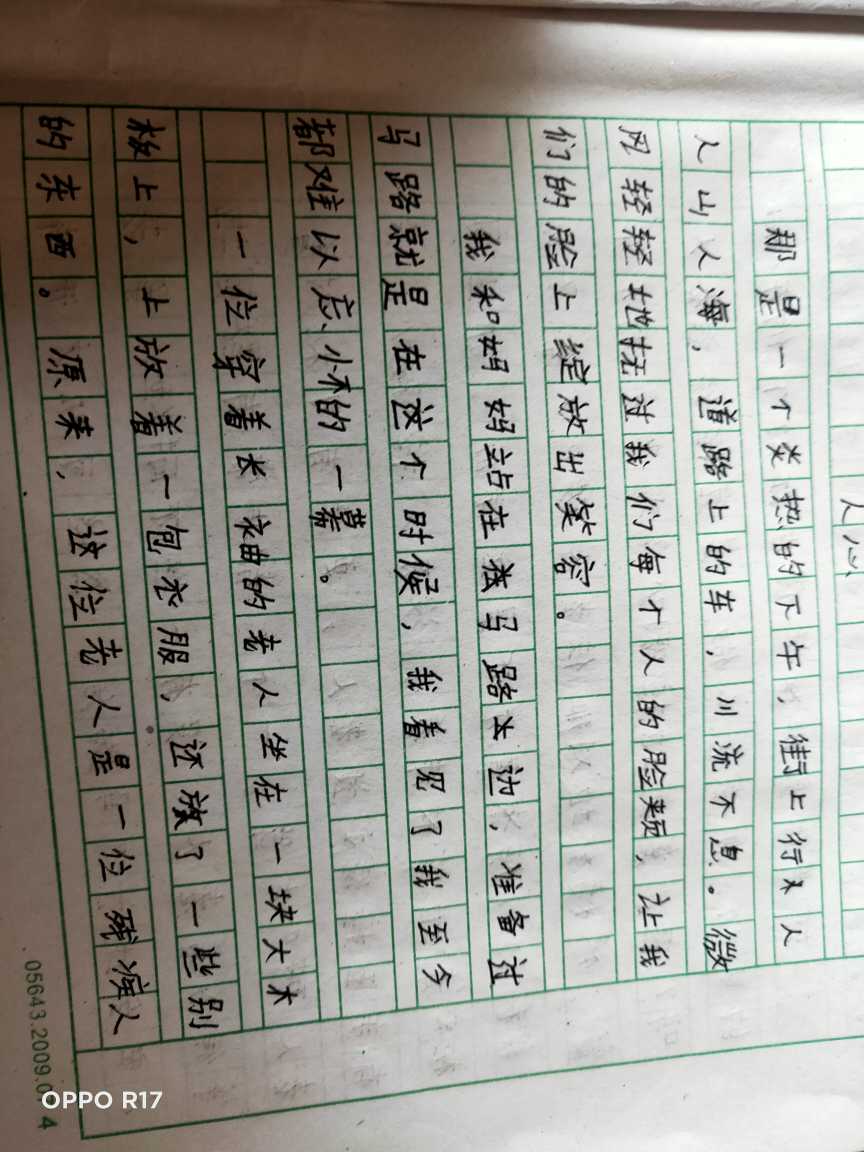 人心
那是一个炎热的下午，街上行人
人山人海，道路上的车，川流不息。微
风轻轻地抚过我们每个人的脸颊，让我
们的脸上绽放出笑容。
我和妈妈站在马路边，准备过
马路就是在这个时候，我看见了我至今
都难以忘怀的一幕。
一位穿着长袖的老人坐在一块大木
板上，上放着一包衣服，还放了一些别
的东西。原来，这位老人是一位残疾人
05643.2009.0 4
OPPO R17